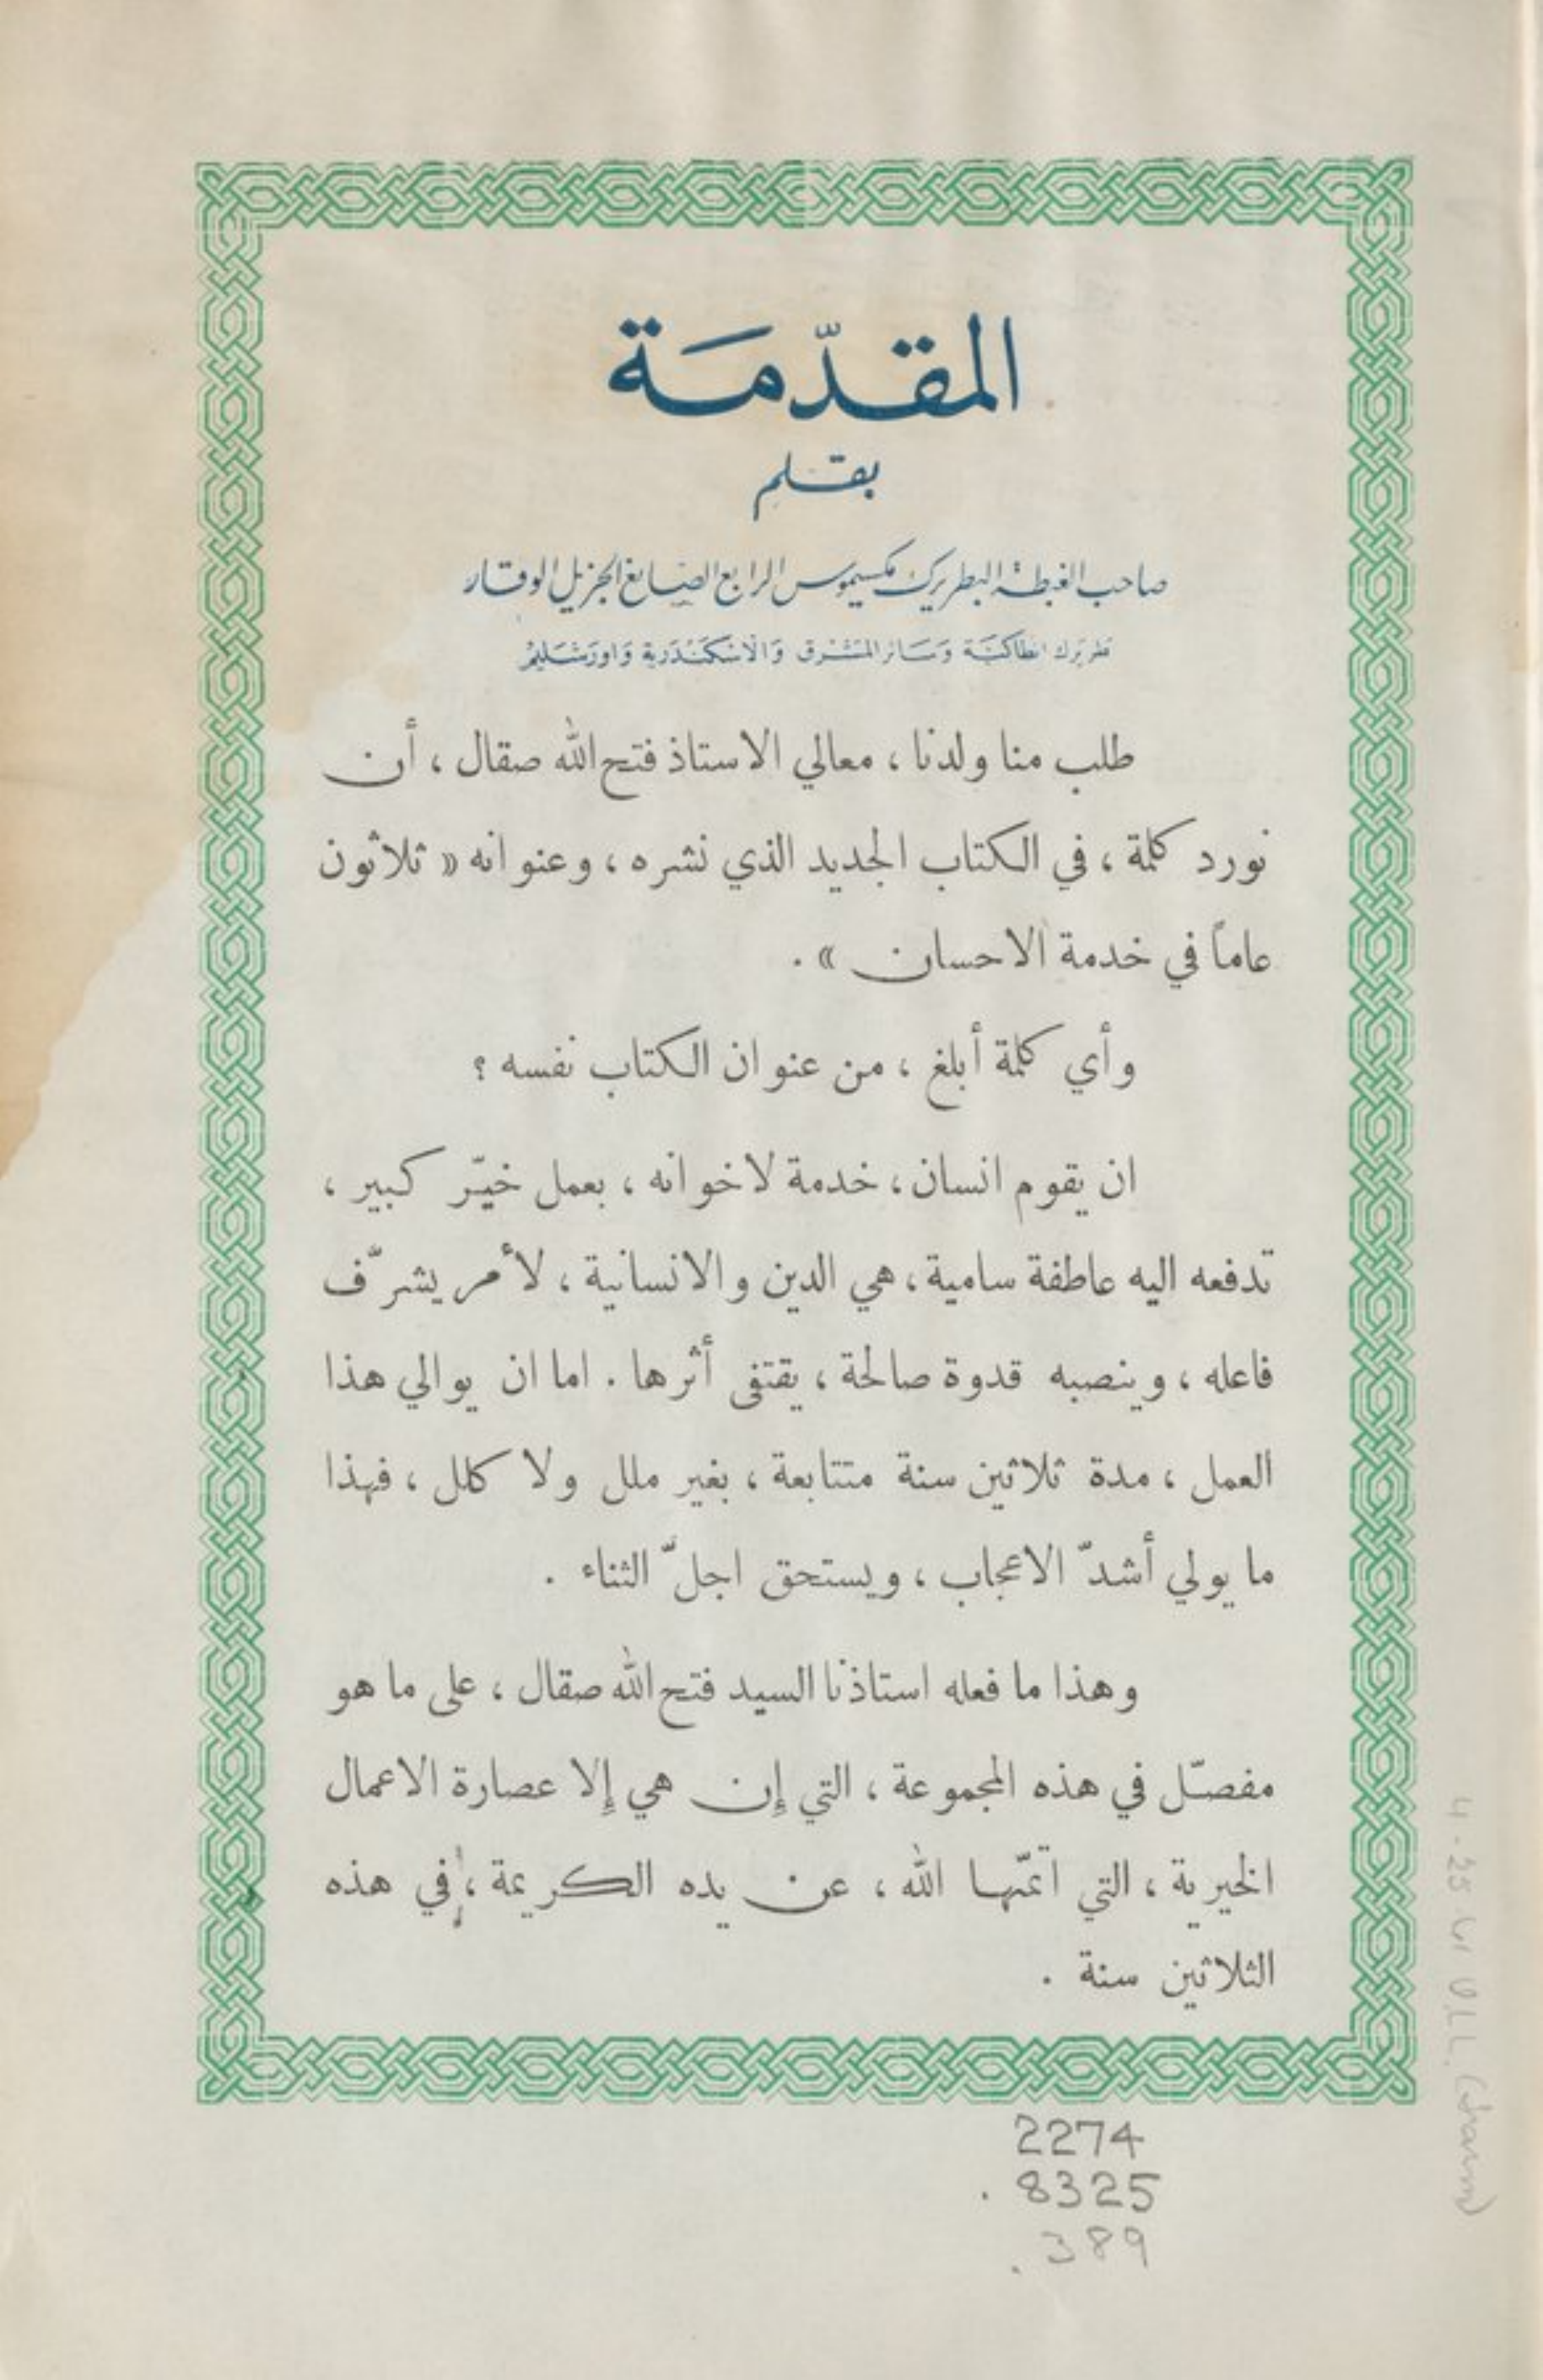 المقدّمَة
بقلم
صاحب الغبطة البطريرك مكسيموس الرابع الصايغ الجزيل الوقار
بطريرك انطاكية وسائر المشرق والاسكندرية واورشليم
طلب منا ولدنا ، معالي الاستاذ فتح الله صقال ، أن
نورد كلمة ، في الكتاب الجديد الذي نشره ، وعنوانه « ثلاثون
عاماً في خدمة الاحسان » .
وأي كلمة أبلغ ، من عنوان الكتاب نفسه ؟
ان يقوم انسان ، خدمة لاخوانه ، بعمل خيّر كبير ،
تدفعه اليه عاطفة سامية ، هي الدين والانسانية ، لأمر يشرّف
فاعله ، وينصبه قدوة صالحة ، يقتفى أثرها . اما ان يوالي هذا
العمل ، مدة ثلاثين سنة متتابعة ، بغير ملل ولا كلل ، فهذا
ما يولي أشدّ الاعجاب ، ويستحق اجلّ الثناء .
وهذا ما فعله استاذنا السيد فتح الله صقال ، على ما هو
مفصّل في هذه المجموعة ، التي إن هي إلا عصارة الاعمال
الخيرية ، التي اتمّها الله ، عن يده الكريمة ، في هذه
الثلاثين سنة .
2274
. 8325
. 389